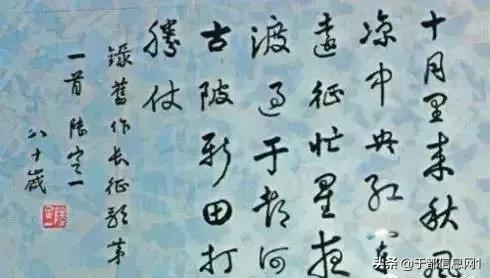 十月里来秋风
凉中央红军
遠征忙星夜
渡过于都河
古陂新田打
勝仗
録舊作长征歌第
一首 陸定一
八十歲
头条 @于都信息网1